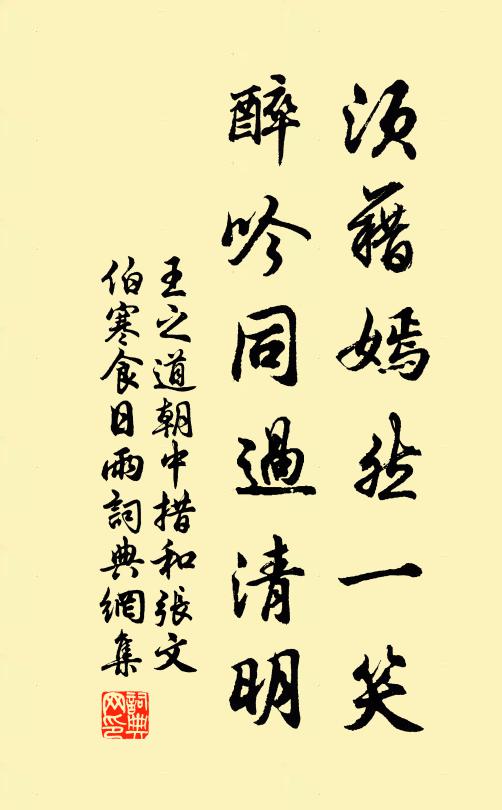 須藉嫣然一笑
醉吟同過清明
王之道朝中措和張文
伯寒食日雨詞典網集
詞典
网印